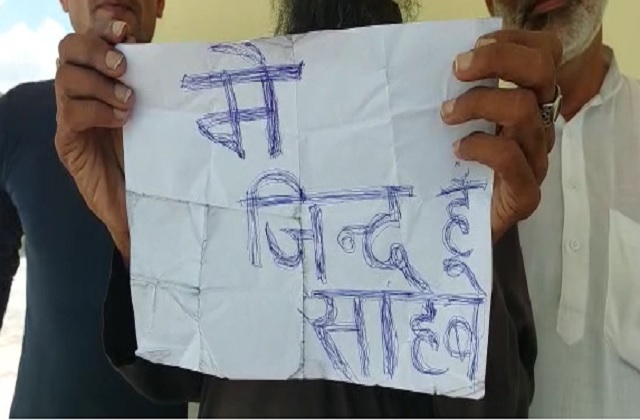 मे
जिन्द हे
साहब